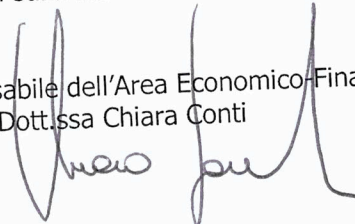 sabile dell'Area Economico-Fina
Dott.ssa Chiara Conti